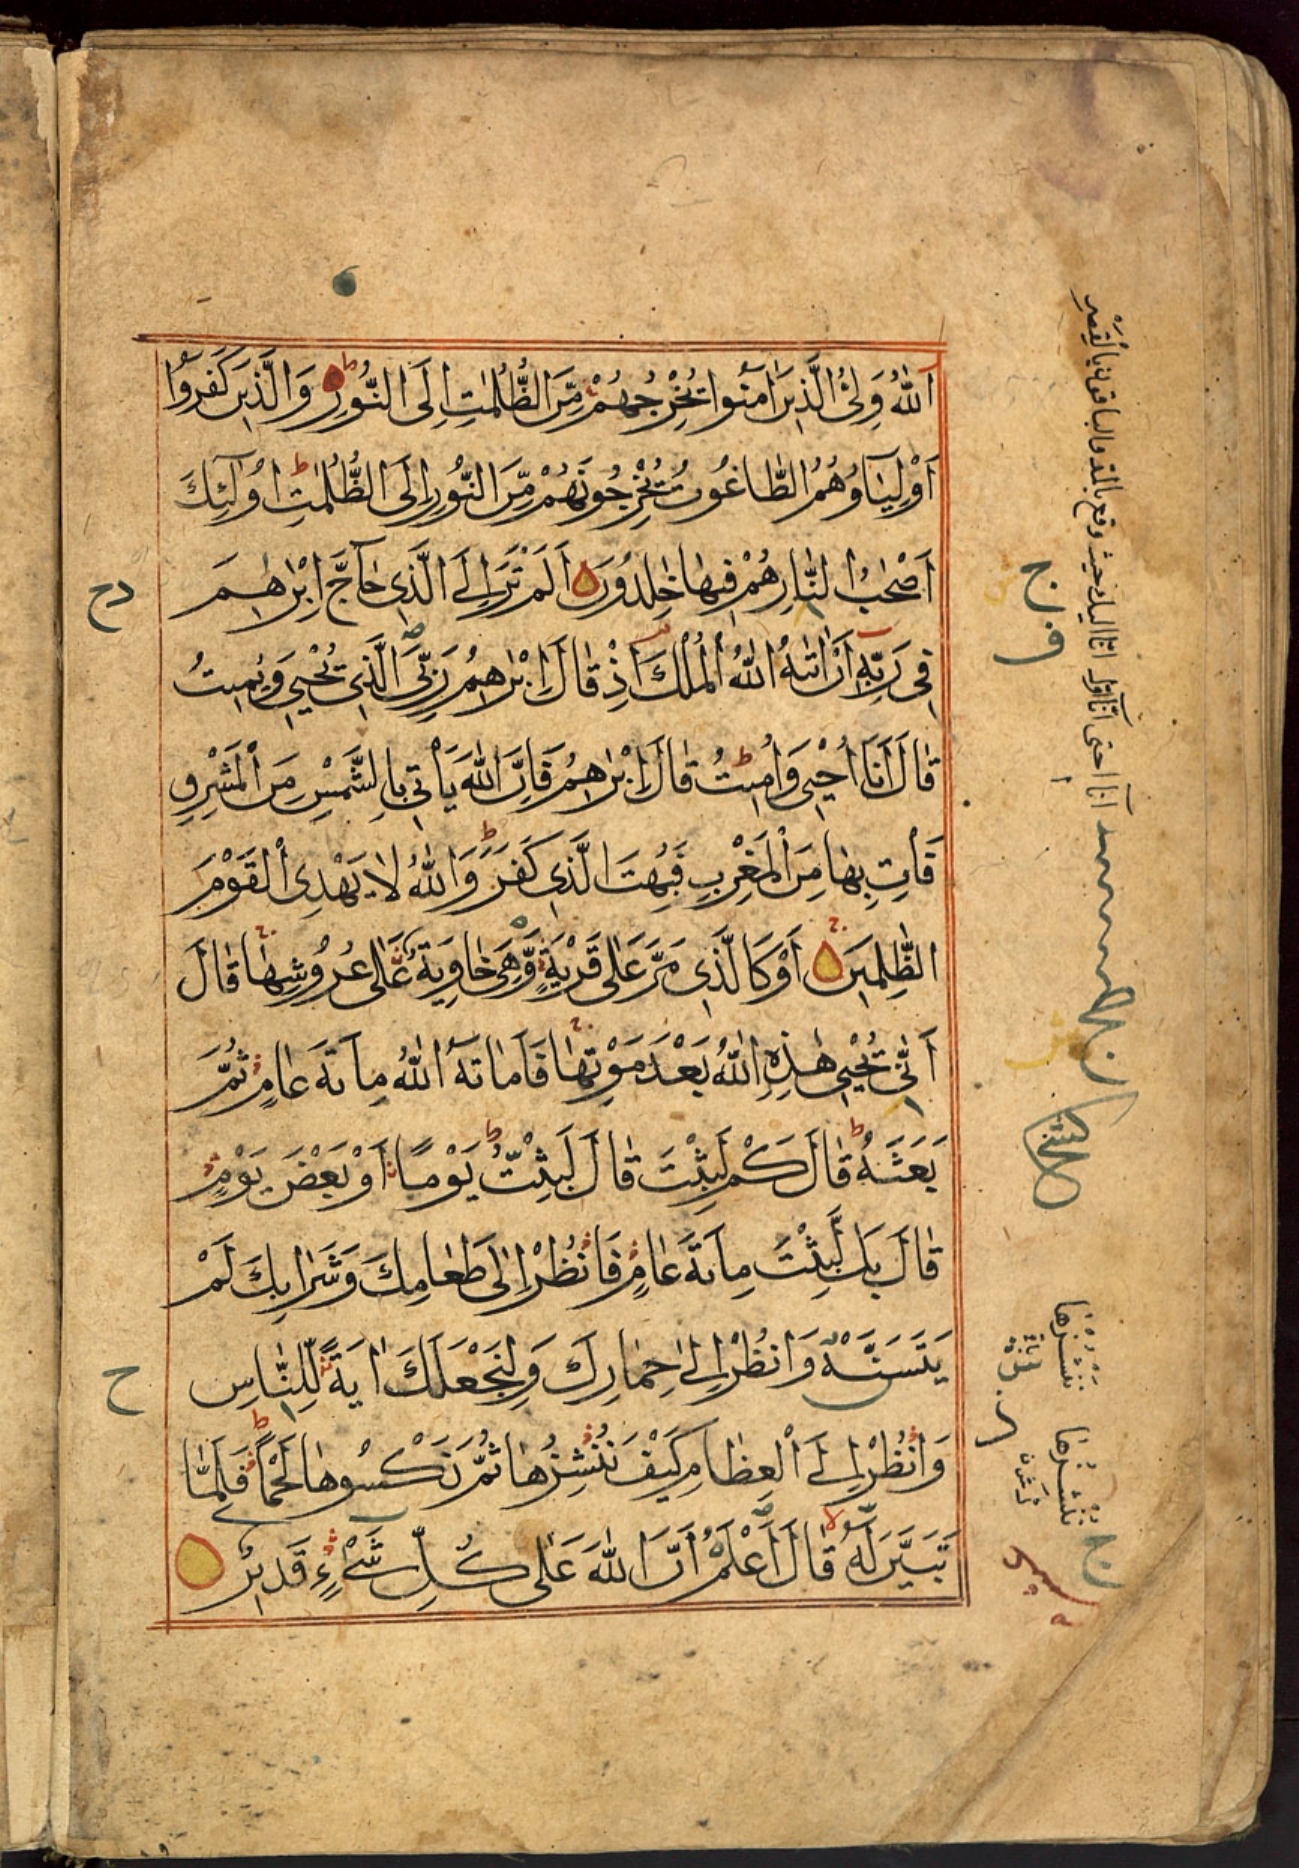 اَللّٰهُ وَلِىُّ الَّذِيْنَ اٰمَنُوا يُخْرِجُهُمْ مِّنَ الظُّلُمٰتِ اِلَى النُّوْرِ وَالَّذِيْنَ كَفَرُوا
اَوْلِيَاؤُهُمُ الطَّاغُوتُ يُخْرِجُونَهُمْ مِّنَ النُّوْرِ اِلَى الظُّلُمٰتِ اُولٰئِكَ
اَصْحٰبُ النَّارِ هُمْ فِيْهَا خٰلِدُوْنَ اَلَمْ تَرَ اِلَى الَّذِى حَاجَّ اِبْرٰهٖمَ
فِى رَبِّهٖ اَنْ اٰتٰىهُ اللّٰهُ الْمُلْكَ اِذْ قَالَ اِبْرٰهٖمُ رَبِّىَ الَّذِى يُحْيٖى وَيُمِيْتُ
قَالَ اَنَا اُحْيٖى وَاُمِيْتُ قَالَ اِبْرٰهٖمُ فَاِنَّ اللّٰهَ يَأْتِى بِالشَّمْسِ مِنَ الْمَشْرِقِ
فَأْتِ بِهَا مِنَ الْمَغْرِبِ فَبُهِتَ الَّذِى كَفَرَ وَاللّٰهُ لَا يَهْدِى الْقَوْمَ
الظّٰلِمِيْنَ اَوْ كَالَّذِى مَرَّ عَلٰى قَرْيَةٍ وَّهِىَ خَاوِيَةٌ عَلٰى عُرُوْشِهَا قَالَ
اَنّٰى يُحْيٖى هٰذِهِ اللّٰهُ بَعْدَ مَوْتِهَا فَاَمَاتَهُ اللّٰهُ مِائَةَ عَامٍ ثُمَّ
بَعَثَهُ قَالَ كَمْ لَبِثْتَ قَالَ لَبِثْتُ يَوْمًا اَوْ بَعْضَ يَوْمٍ
قَالَ بَلْ لَّبِثْتَ مِائَةَ عَامٍ فَانْظُرْ اِلٰى طَعَامِكَ وَشَرَابِكَ لَمْ
يَتَسَنَّهْ وَانْظُرْ اِلٰى حِمَارِكَ وَلِنَجْعَلَكَ اٰيَةً لِّلنَّاسِ
وَانْظُرْ اِلَى الْعِظَامِ كَيْفَ نُنْشِزُهَا ثُمَّ نَكْسُوْهَا لَحْمًا فَلَمَّا
تَبَيَّنَ لَهُ قَالَ اَعْلَمُ اَنَّ اللّٰهَ عَلٰى كُلِّ شَىْءٍ قَدِيْرٌ
ننشرها
ننشزها